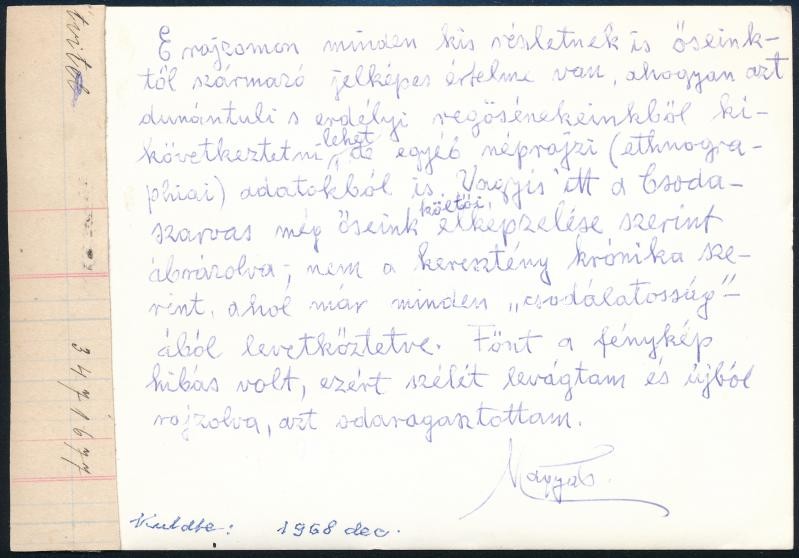 E rajzomon minden kis részletnek is őseink-
től származó jelképes értelme van, ahogyan azt
dunántuli s erdélyi regösénekeinkből ki-
következtetni lehet, de egyéb néprajzi (ethnogra-
phiai) adatokból is. Vagyis itt a Csoda-
szarvas még őseink költői elképzelése szerint
ábrázolva, nem a keresztény krónika sze-
rint, ahol már minden „csodálatosság"-
ából levetkőztetve. Fönt a fénykép
hibás volt, ezért szélét levágtam és újból
rajzolva, azt odaragasztottam.
Küldte: 1968 dec.
3471677